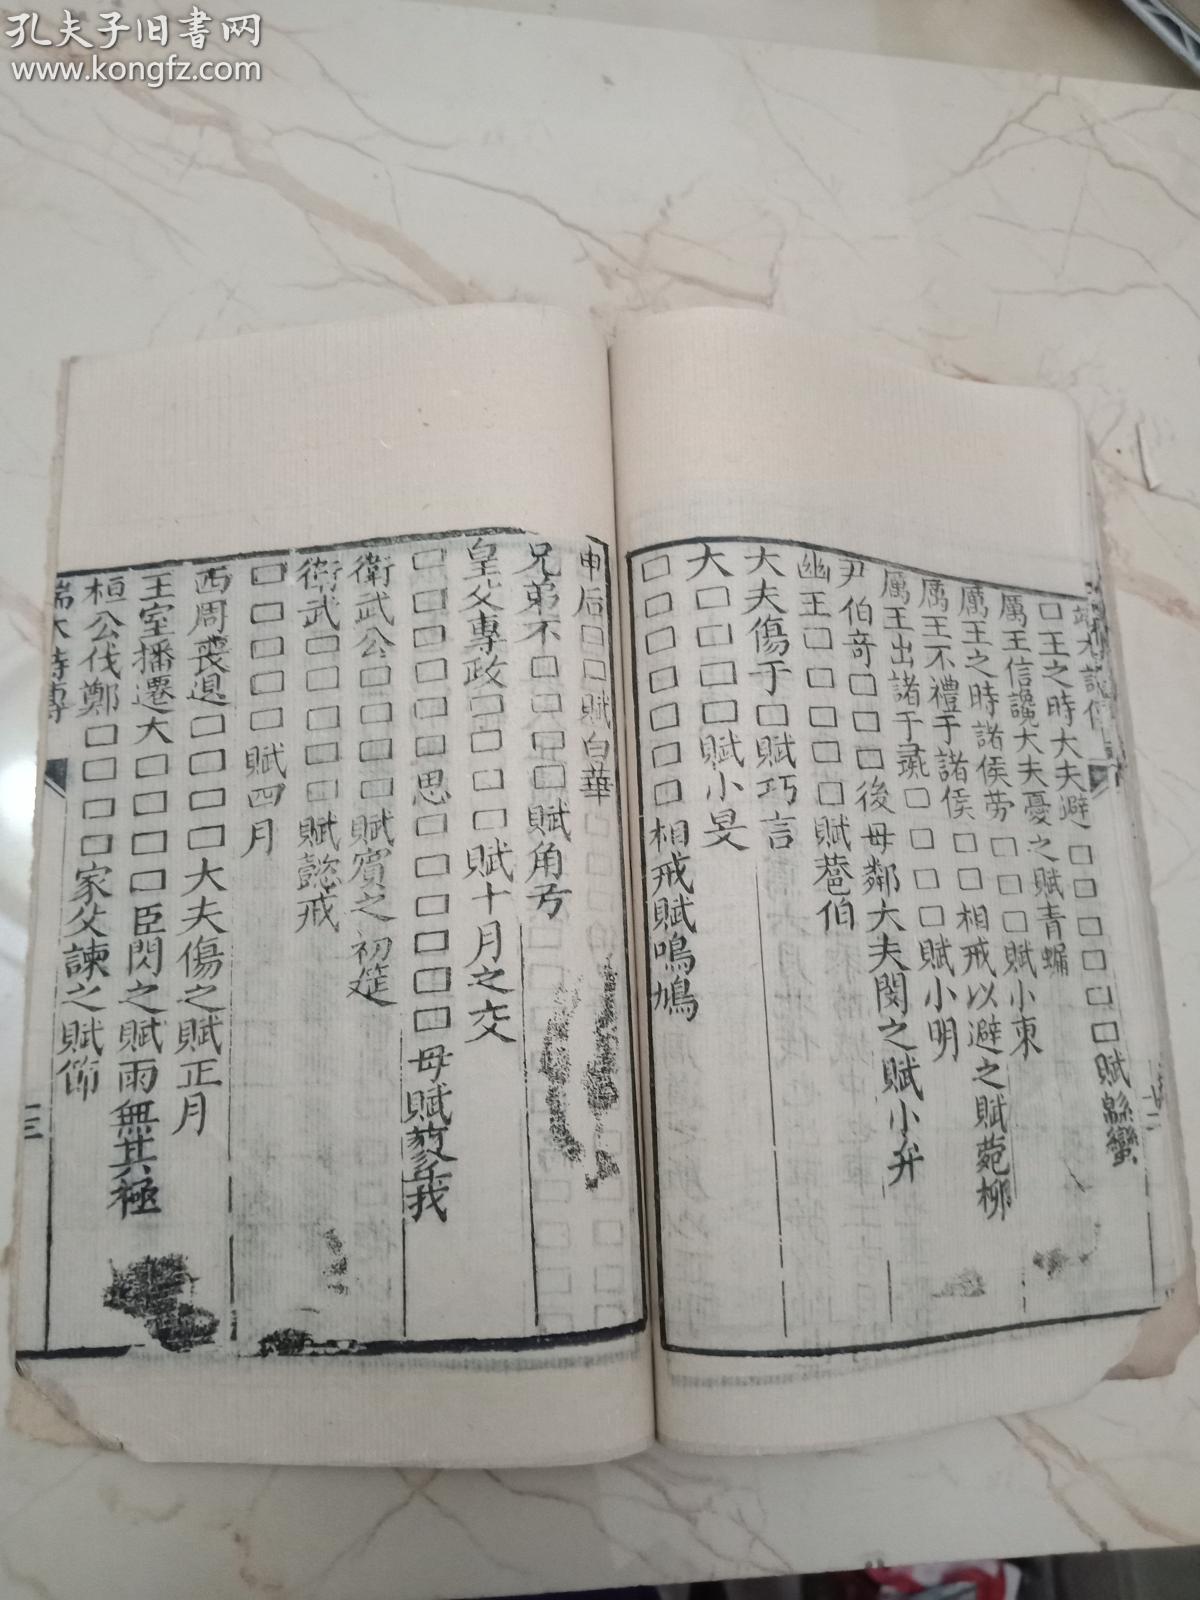 孔夫子旧书网
www.kongfz.com
□王之時大夫避□□□□□□賦緜蠻
厲王信讒大夫憂之賦青蝿
厲王之時諸侯勞□□□□賦小東
厲王不禮于諸侯□□相戒以避之賦菀柳
厲王出諸于彘□□□□賦小明
尹伯奇□□□後母鄰大夫閔之賦小弁
幽王□□□□賦巷伯
大夫傷于□賦巧言
大□□□□賦小旻
□□□□□□相戒賦鳴鳩
申后□□□賦白華
兄弟不□□□□賦角弓
皇父專政□□□□賦十月之交
□□□□□思□□□□□母賦蓼莪
衛武公□□□□賦賓之初筵
衛武□□□□賦懿戒
□□□□□賦四月
西周喪𨓤□□□□大夫傷之賦正月
王室播遷大□□□□臣閔之賦雨無其極
桓公伐鄭□□□□家父諫之賦節
端木詩傳
三